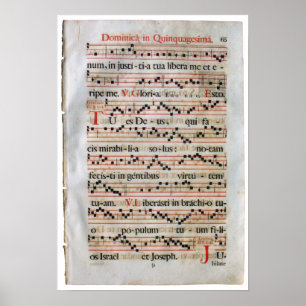 Dominica in Quinquagesima. 65
num, in justi-ti-a tua libera me et e-
ripe me. V. Glori-a. Esto.
TU es De-us, qui fa-
cis mirabi-li-a so-lus: no-tam
fecis-ti in gentibus virtu-tem
tu-am. V.I. liberasti in brachi-o tu-
o populum tu-um fili-
os Israel et Joseph. JU
bilate